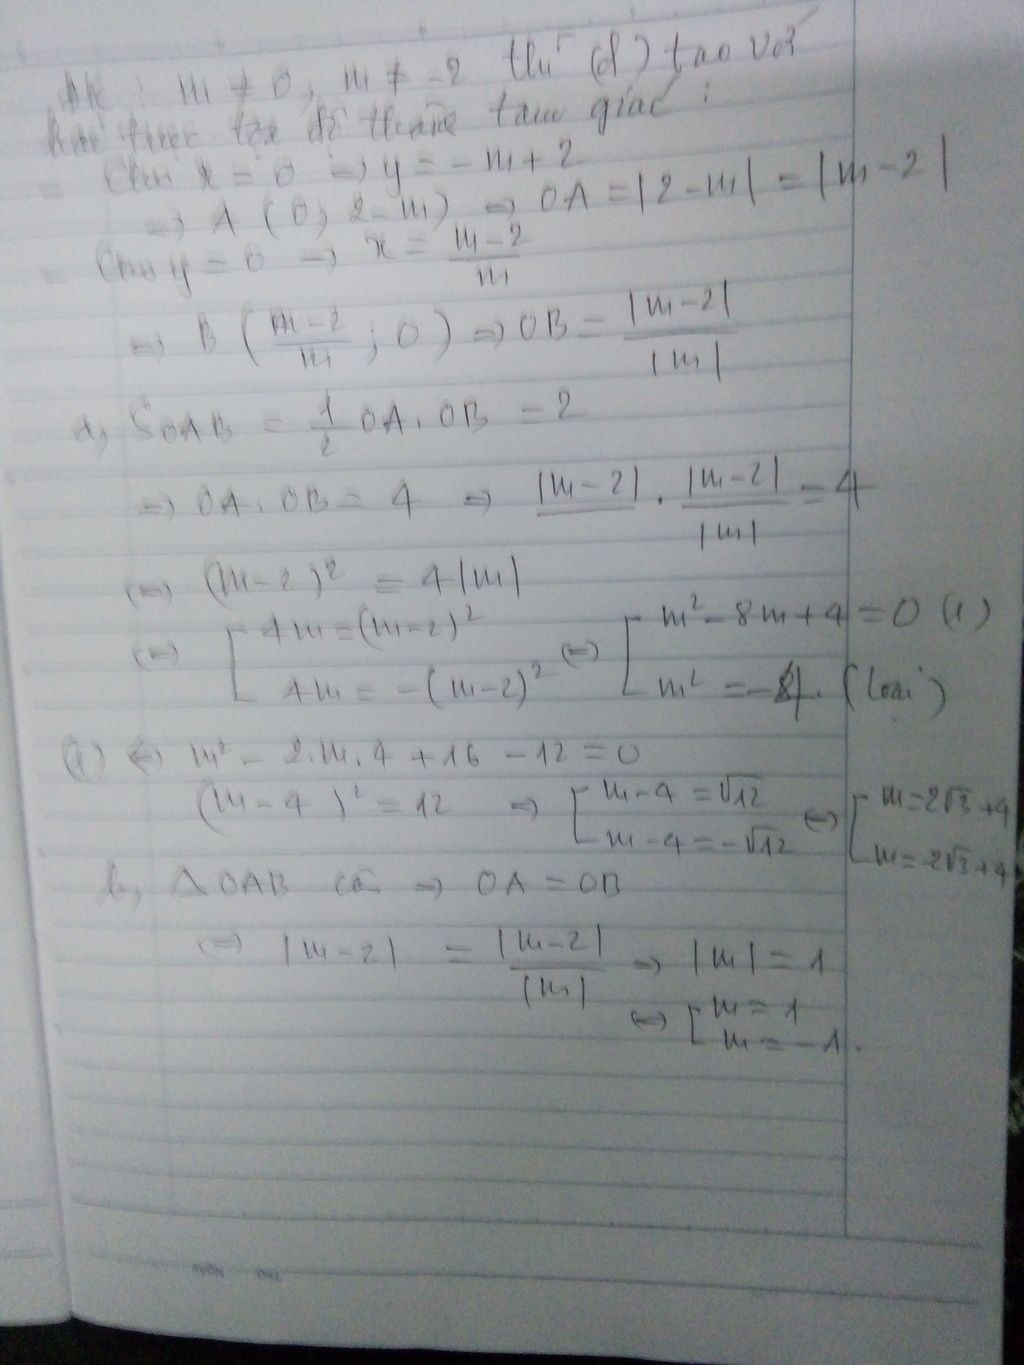 Đk : m ≠ 0, m ≠ -2 thì (d) tạo với
hai trục tọa độ thành tam giác :
- Cho x = 0 => y = -m + 2
=> A (0; 2-m) => OA = |2-m| = |m-2|
- Cho y = 0 => x = \frac{m-2}{m}
=> B (\frac{m-2}{m}; 0) => OB = \frac{|m-2|}{|m|}
a, S_{OAB} = \frac{1}{2} OA. OB = 2
=> OA. OB = 4 => |m-2| . \frac{|m-2|}{|m|} = 4
<=> (m-2)² = 4|m|
<=> [ 4m = (m-2)² <=> [ m² - 8m + 4 = 0 (1)
4m = -(m-2)² m² = -4. (loại)
(1) <=> m² - 2.m.4 + 16 - 12 = 0
(m-4)² = 12 => [ m-4 = √12 <=> [ m = 2√3 + 4
m-4 = -√12 m = -2√3 + 4
b, △OAB cân => OA = OB
<=> |m-2| = \frac{|m-2|}{|m|} => |m| = 1
<=> [ m = 1
m = -1.